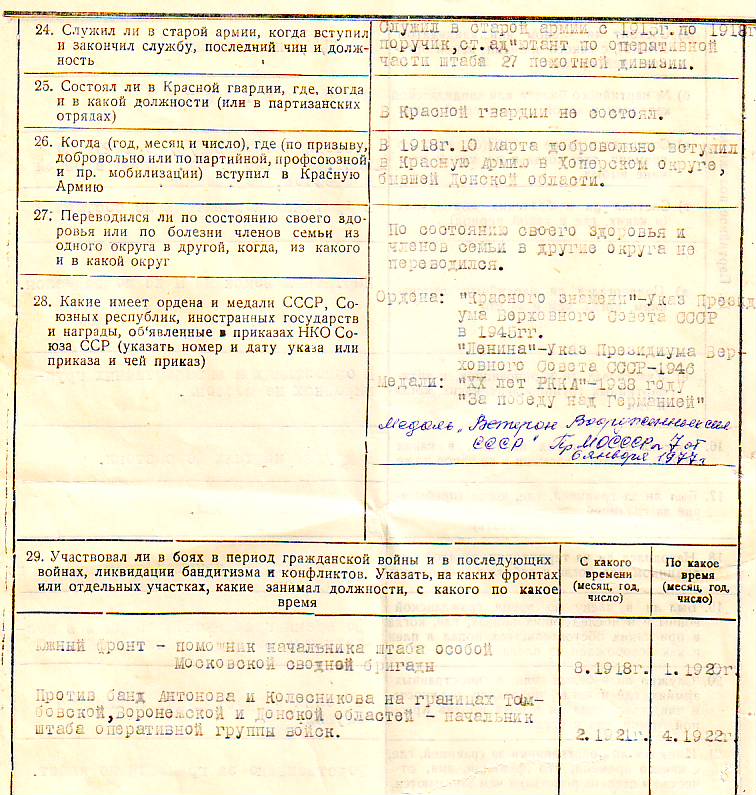 24. Служил ли в старой армии, когда вступил
и закончил службу, последний чин и долж-
ность
Служил в старой армии с 1915г. по 1918г
поручик, ст. ад"ютант по оперативной
части штаба 27 пехотной дивизии.
25. Состоял ли в Красной гвардии, где, когда
и в какой должности (или в партизанских
отрядах)
В Красной гвардии не состоял.
26. Когда (год, месяц и число), где (по призыву,
добровольно или по партийной, профсоюзной
и пр. мобилизации) вступил в Красную
Армию
В 1918г. 10 марта добровольно вступил
в Красную Армию в Хоперском округе,
бывшей Донской области.
27. Переводился ли по состоянию своего здо-
ровья или по болезни членов семьи из
одного округа в другой, когда, из какого
и в какой округ
По состоянию своего здоровья и
членов семьи в другие округа не
переводился.
28. Какие имеет ордена и медали СССР, Со-
юзных республик, иностранных государств
и награды, об'явленные в приказах НКО Со-
юза ССР (указать номер и дату указа или
приказа и чей приказ)
Ордена: "Красного знамени"-Указ Презид
ума Верховного Совета СССР
в 1945гг.
"Ленина"-Указ Президиума Вер-
ховного Совета СССР-1946
Медали: "XX лет РККА"-1938 году
"За победу над Германией"
Медаль „Ветеран Вооруженных сил
СССР" Пр. МО СССР № 7 от
6 января 1977г
29. Участвовал ли в боях в период гражданской войны и в последующих
войнах, ликвидации бандитизма и конфликтов. Указать, на каких фронтах
или отдельных участках, какие занимал должности, с какого по какое
время
С какого
времени
(месяц, год,
число)
По какое
время
(месяц, год,
число)
Южный фронт - помощник начальника штаба особой
Московской сводной бригады
8.1918г.
1.1920г.
Против банд Антонова и Колесникова на границах Там-
бовской, Воронежской и Донской областей - начальник
штаба оперативной группы войск.
2.1921г.
4.1922г.